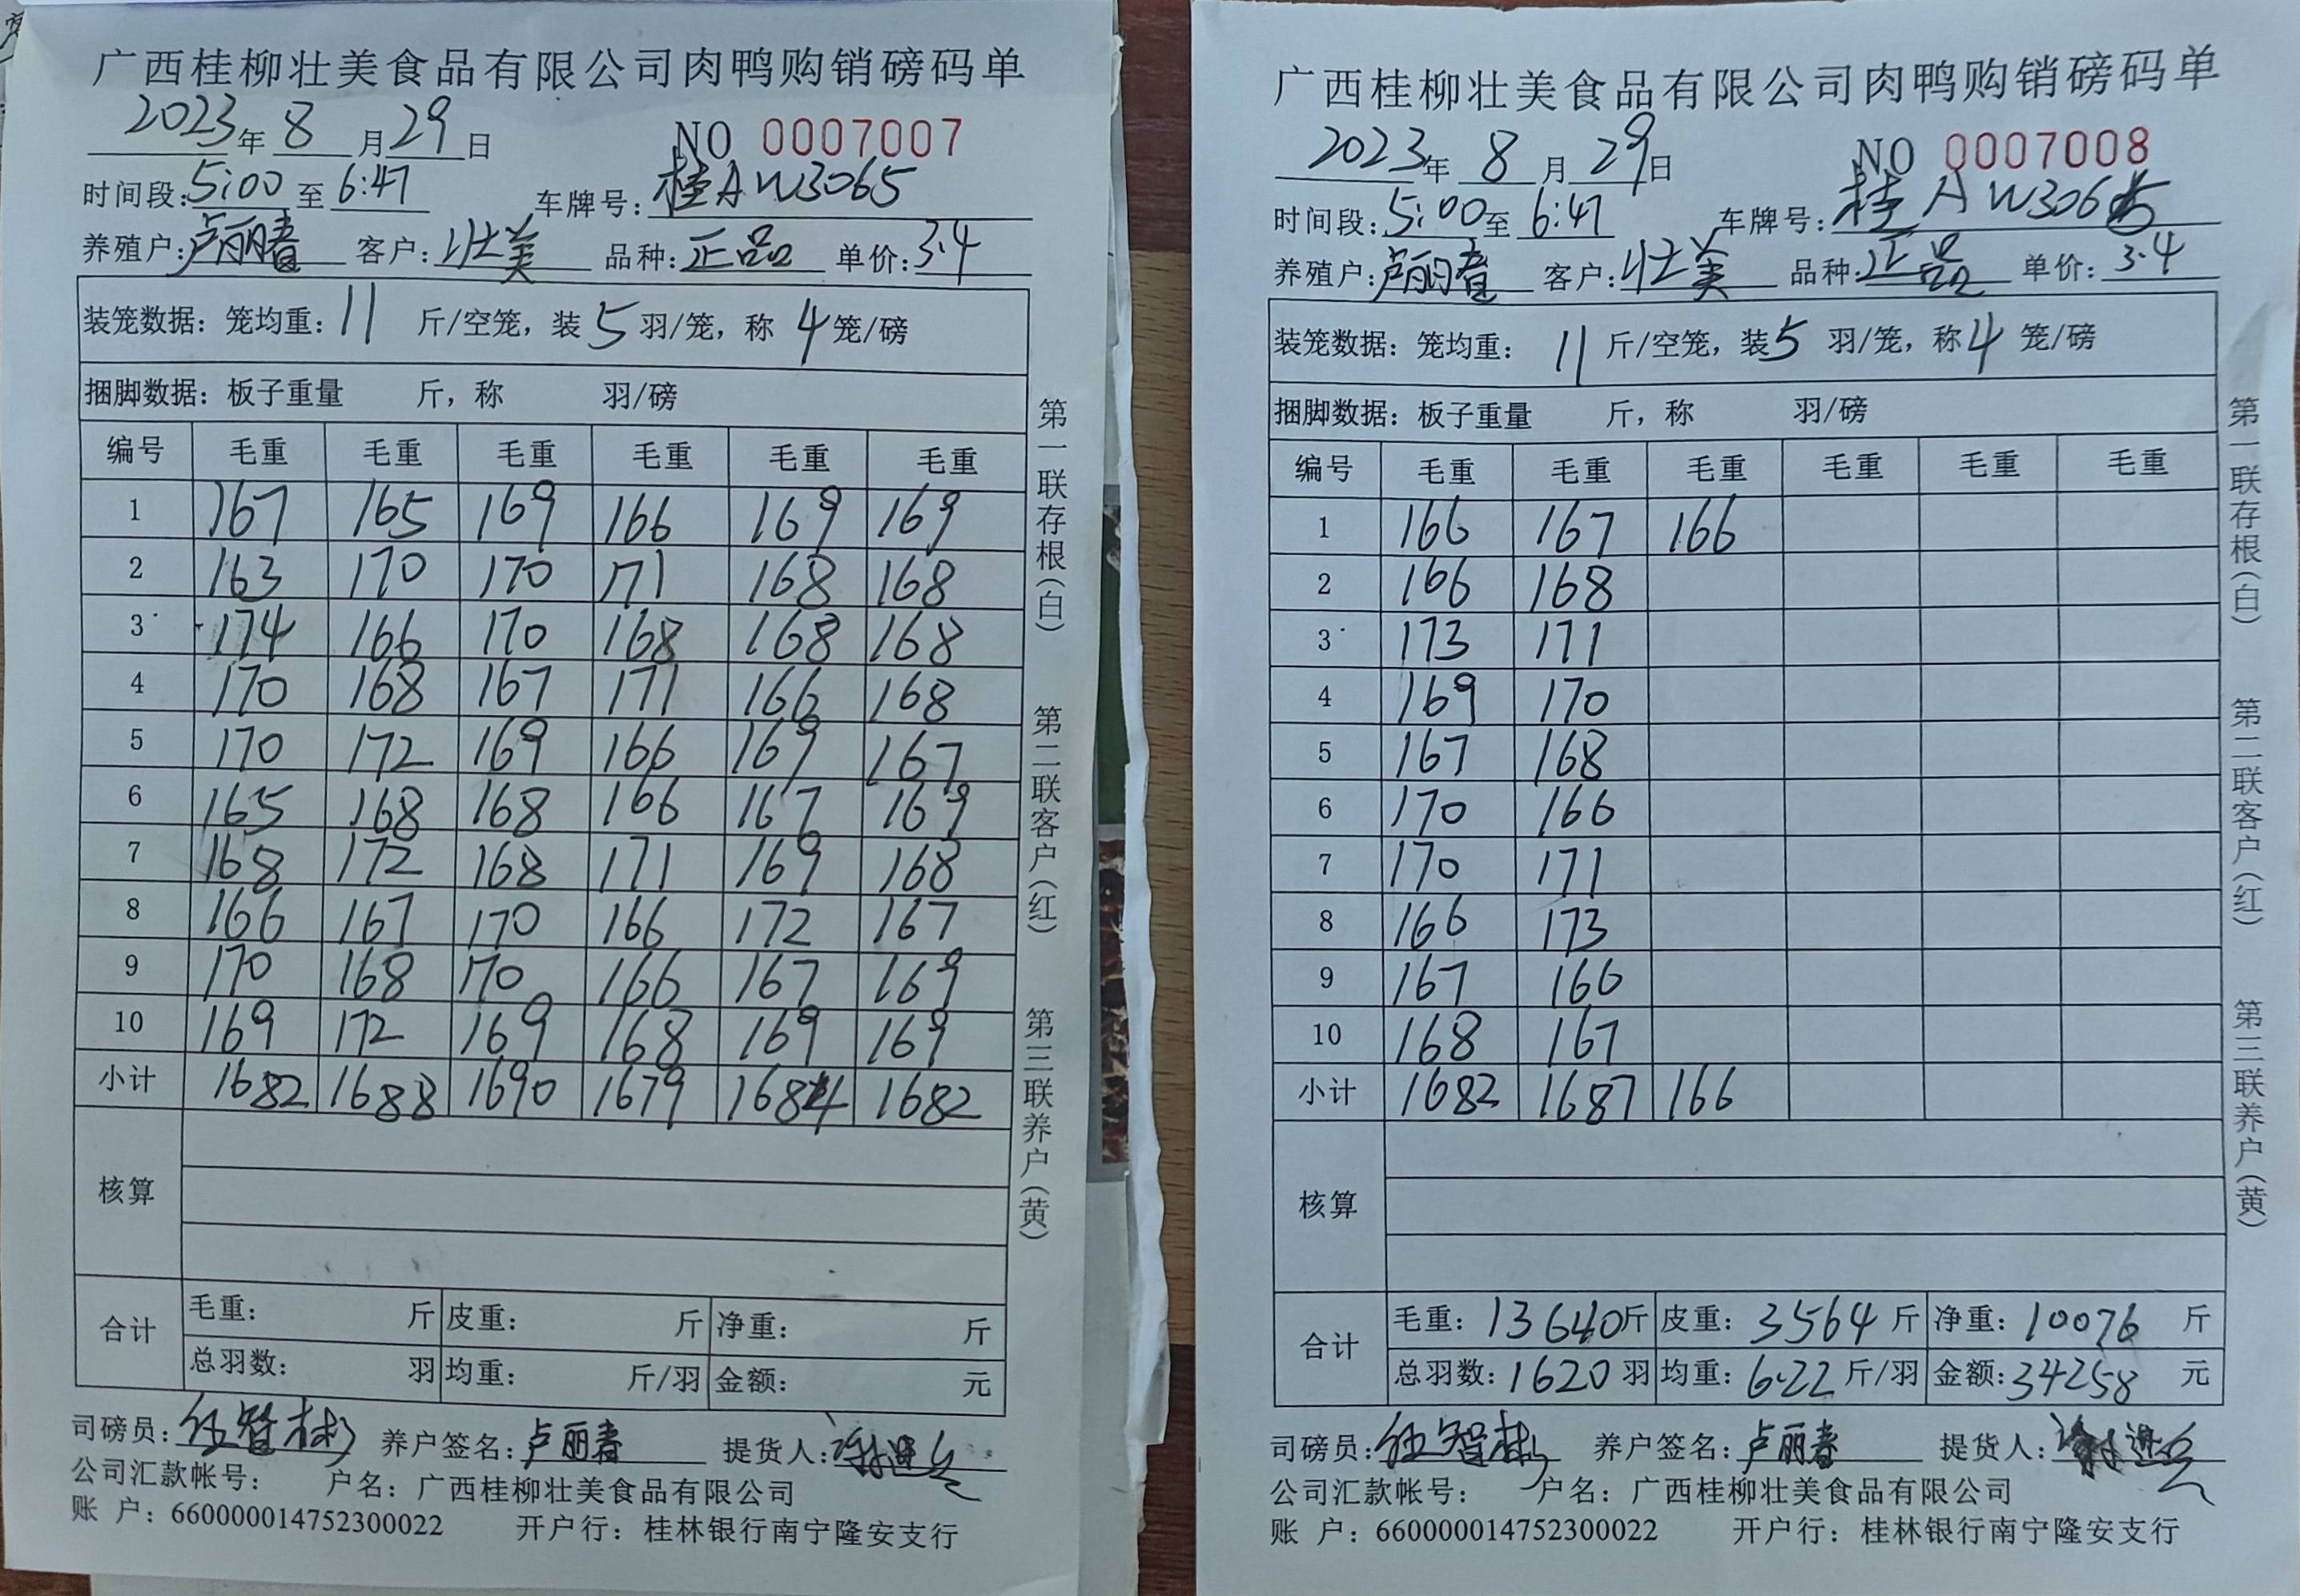 广西桂柳壮美食品有限公司肉鸭购销磅码单
2023年 8 月 29 日 NO 0007007
时间段:5:00 至 6:47 车牌号:桂AW3065
养殖户:卢丽春 客户:壮美 品种:正品 单价:3.4
装笼数据:笼均重:11 斤/空笼,装 5 羽/笼,称 4 笼/磅
捆脚数据:板子重量 斤,称 羽/磅
编号 毛重 毛重 毛重 毛重 毛重 毛重
1 167 165 169 166 169 169
2 163 170 170 171 168 168
3 174 166 170 168 168 168
4 170 168 167 171 166 168
5 170 172 169 166 169 167
6 165 168 168 166 167 169
7 168 172 168 171 169 168
8 166 167 170 166 172 167
9 170 168 170 166 167 169
10 169 172 169 168 169 169
小计 1682 1688 1690 1679 1684 1682
核算
合计 毛重: 斤 皮重: 斤 净重: 斤
总羽数: 羽 均重: 斤/羽 金额: 元
司磅员:伍智彬 养户签名:卢丽春 提货人:
公司汇款帐号: 户名:广西桂柳壮美食品有限公司
账 户:660000014752300022 开户行:桂林银行南宁隆安支行
第一联存根(白) 第二联客户(红) 第三联养户(黄)
广西桂柳壮美食品有限公司肉鸭购销磅码单
2023年 8 月 29日 NO 0007008
时间段:5:00至 6:47 车牌号:桂AW3065
养殖户:卢丽春 客户:壮美 品种:正品 单价:3.4
装笼数据:笼均重: 11 斤/空笼,装5 羽/笼,称4 笼/磅
捆脚数据:板子重量 斤,称 羽/磅
编号 毛重 毛重 毛重 毛重 毛重 毛重
1 166 167 166
2 166 168
3 173 171
4 169 170
5 167 168
6 170 166
7 170 171
8 166 173
9 167 166
10 168 167
小计 1682 1687 166
核算
合计 毛重:13640斤 皮重:3564 斤 净重:10076 斤
总羽数:1620 羽 均重:6.22 斤/羽 金额:34258 元
司磅员:伍智彬 养户签名:卢丽春 提货人:
公司汇款帐号: 户名:广西桂柳壮美食品有限公司
账 户:660000014752300022 开户行:桂林银行南宁隆安支行
第一联存根(白) 第二联客户(红) 第三联养户(黄)